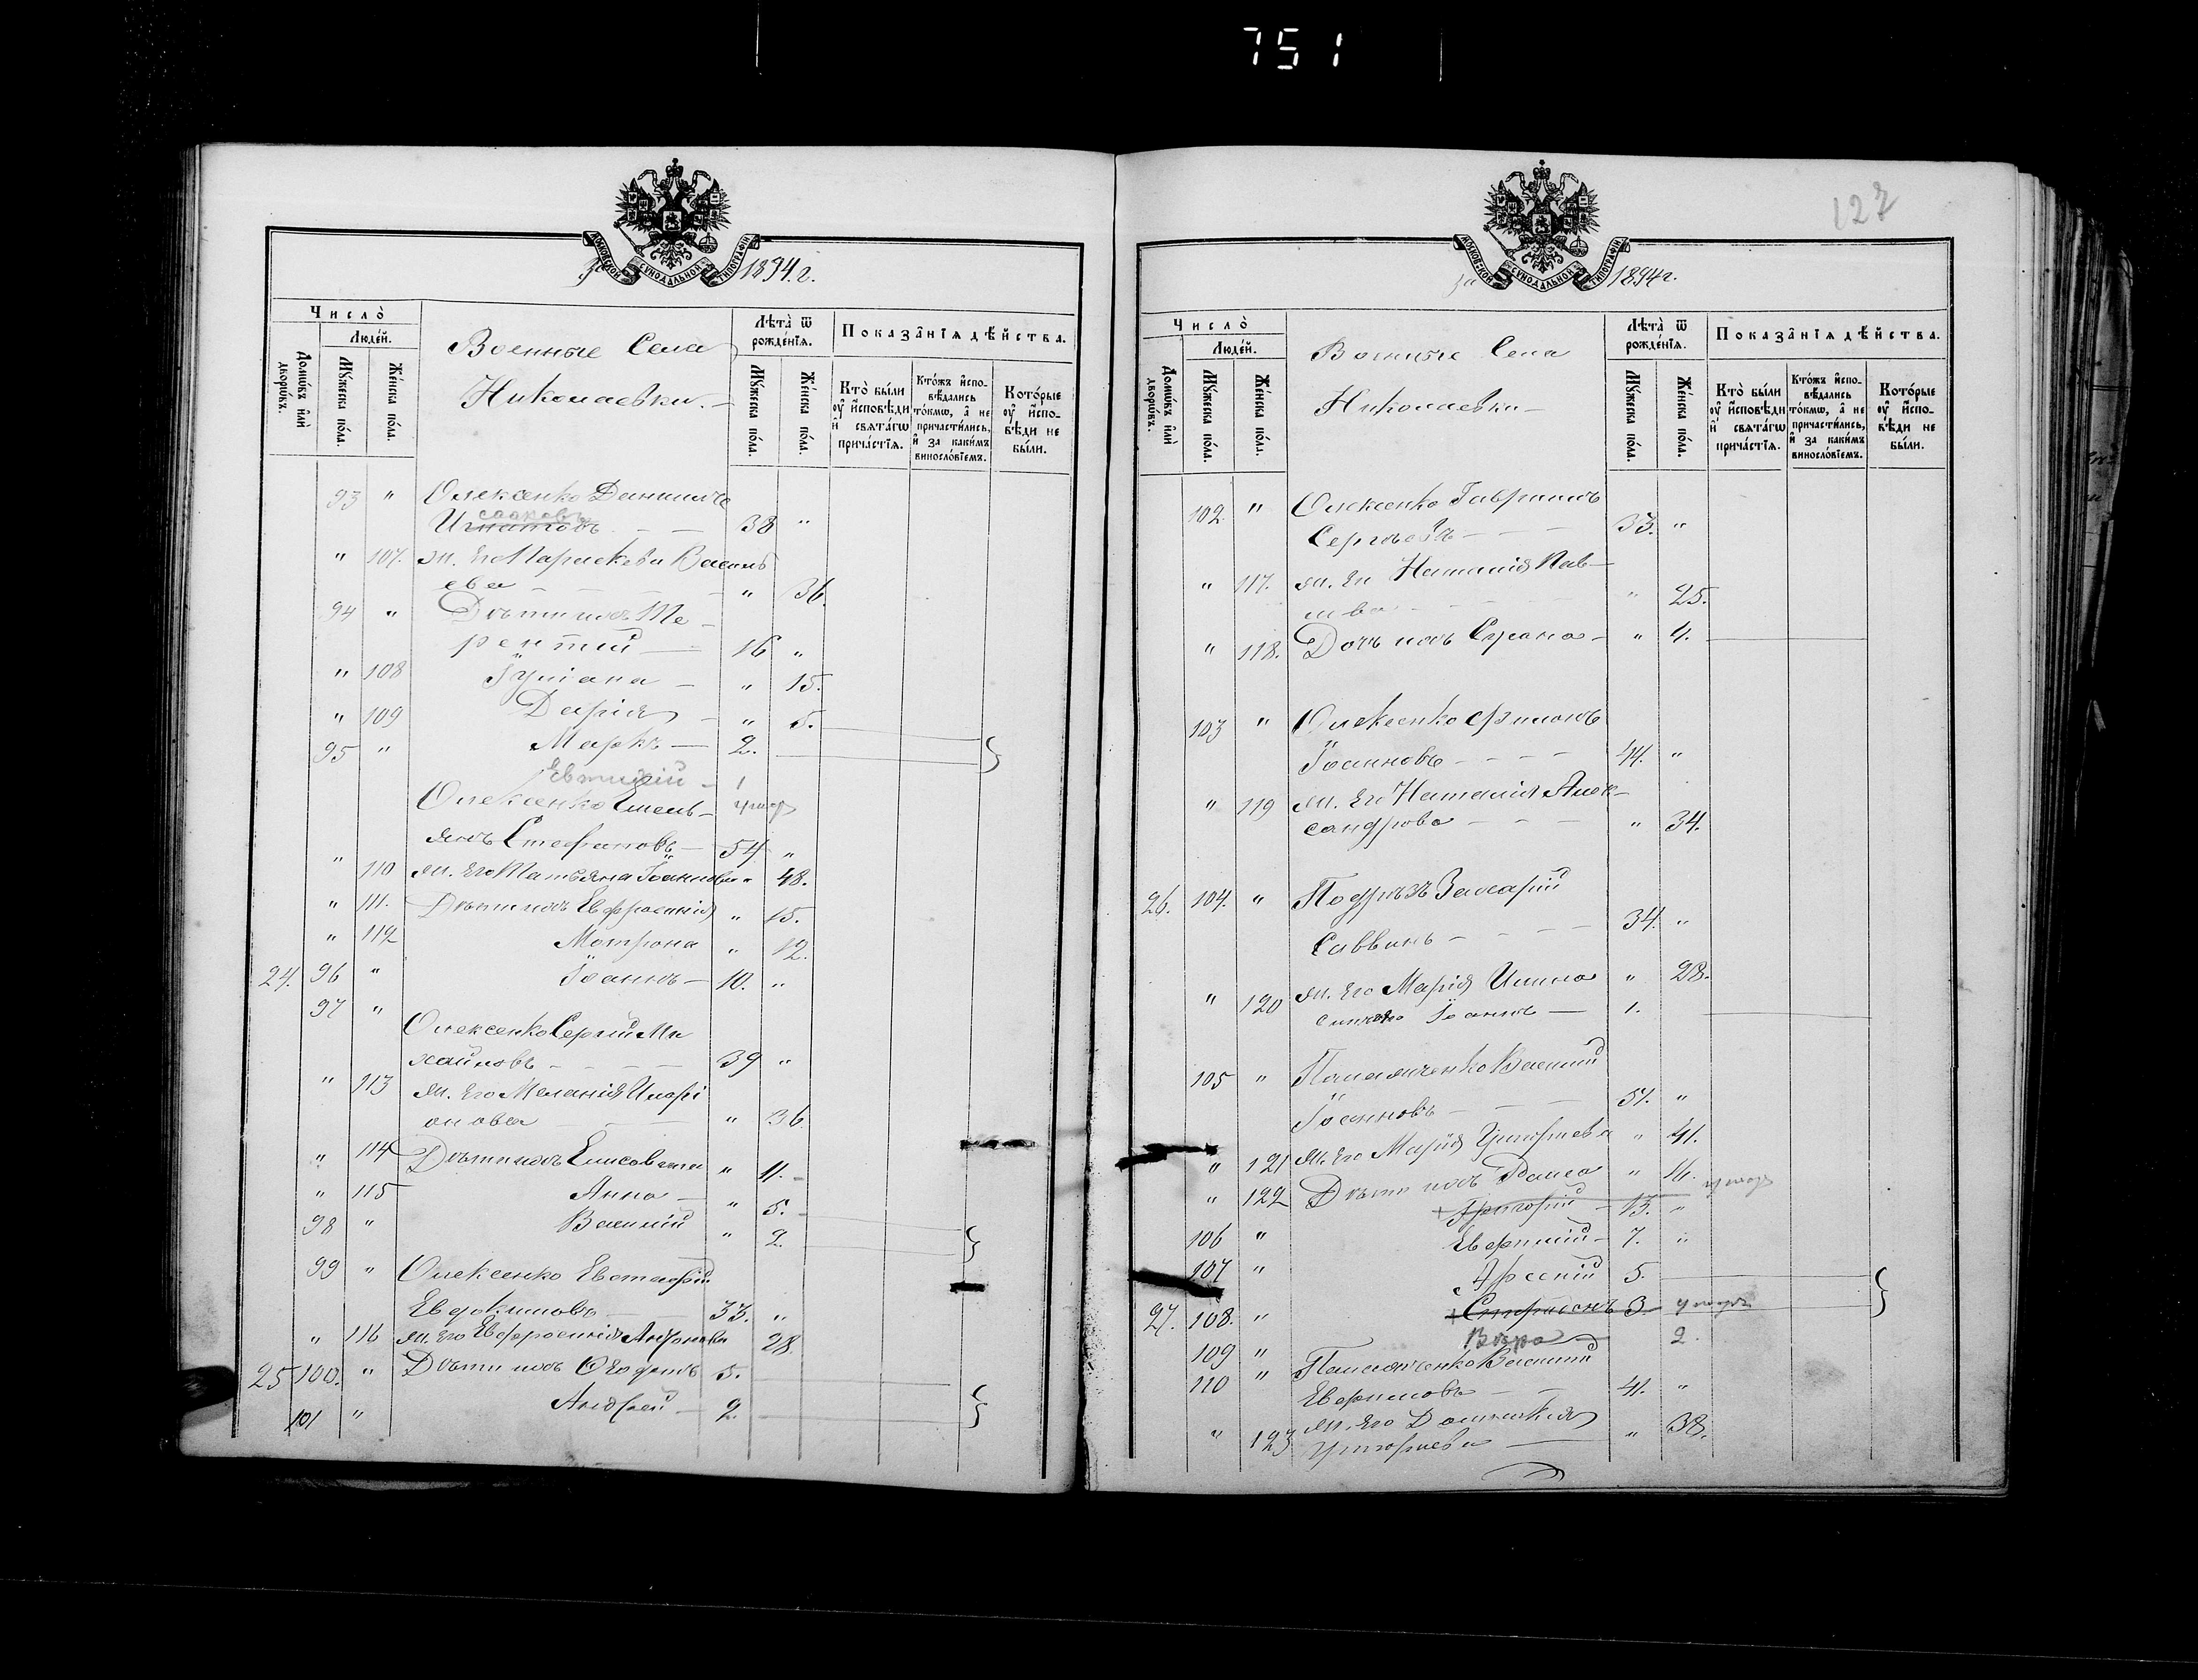 751
127
МОСКОВСКОЙ СѴНОДАЛЬНОЙ ТИПОГРАФІИ
за 1894.г.
Число̀
Людей.
Домѡвъ и҆лѝ дворѡвъ.
Мꙋжеска по́ла.
Же́нска по́ла.
Военные Села
Николаевки.
Лѣта̀ ѿ рожде́нїѧ.
Мꙋжеска по́ла.
Же́нска по́ла.
Показа̑нїѧ дѣ́йства.
Кто̀ бы́ли ᲂу҆ и҆сповѣди и҆ свѧта́гѡ прича́стїѧ.
Кто́жъ и҆споⷡ вѣдались то́кмѡ, а҆ не причасти́лись, и҆ за каки́мъ виносло́вїемъ.
Кото́рые ᲂу҆ и҆спо- вѣди не бы́ли.
93 " Олексенко Даниилъ
сааковъ
Игнатовъ - - 38 "
" 107. ж. его Параскева Василь
ева - - " 36.
94 " Дѣти ихъ Те-
рентий — 16 "
" 108 Іуліана - " 15.
" 109 Дарія - " 5.
95 " Маркъ — 2.
Евтихій - 1
Олексенко Емель- умер
янъ Стефановъ - 54 "
" 110 ж. его Татьяна Іоаннова " 48.
" 111. Дѣти ихъ Евфросинія " 15.
" 112 Мотрона " 12.
24. 96 " Іоаннъ - 10. "
97 " Олексенко Сергій Ми
хайловъ - - - 39 "
" 113 ж. его Меланія Иларі
онова - - " 36
" 114 Дѣти ихъ Елисавета " 11.
" 115 Анна - " 5.
98 " Василій " 2.
99 " Олексенко Евстафій
Евдокимовъ 33. "
" 116 ж. его Евфросинія Андронова 28
25 100. " Дѣти ихъ Феофанъ 5.
101 " Андрей - 2.
МОСКОВСКОЙ СѴНОДАЛЬНОЙ ТИПОГРАФІИ
за 1894 г.
Число̀
Людей.
Домѡвъ и҆лѝ дворѡвъ.
Мꙋжеска по́ла.
Же́нска по́ла.
Военные Села
Николаевки -
Лѣта̀ ѿ рожде́нїѧ.
Мꙋжеска по́ла.
Же́нска по́ла.
Показа̑нїѧ дѣ́йства.
Кто̀ бы́ли ᲂу҆ и҆сповѣди и҆ свѧта́гѡ прича́стїѧ.
Кто́жъ и҆спо- вѣдались то́кмѡ, а҆ не причасти́лись, и҆ за каки́мъ виносло́вїемъ.
Кото́рые ᲂу҆ и҆спо- вѣди не бы́ли.
102. " Олексенко Гавриилъ
Сергѣевъ - - - 33. "
" 117. ж. ег Наталія Пав-
лова - - - " 25.
" 118. Дочь ихъ Сусана - " 4.
103 " Олексенко Филонъ
Іоанновъ - - - - 44. "
" 119 ж. его Наталія Алек-
сандрова - - - " 34.
26. 104. " Подрѣзъ Захарій
Саввинъ - - - - 34. "
" 120 ж. его Марія Ильина " 28.
сынъ его Іоаннъ — 1.
105 " Паламаренко Василий
Іоанновъ - - - 51. "
" 121 ж. его Марія Григорьева " 41.
" 122 Дѣти ихъ Ѳекла " 16.
+ Григорій - 13. " умер
106 " Евфимій - 7. "
107 " Арсеній 5.
27. 108. " + Стефанъ 3 умеръ
109 " Вѣра 2.
110 " Паламаренко Василий
Евфимовъ - - 41. "
" 123 ж. его Домникія
Григорьева — " 38.